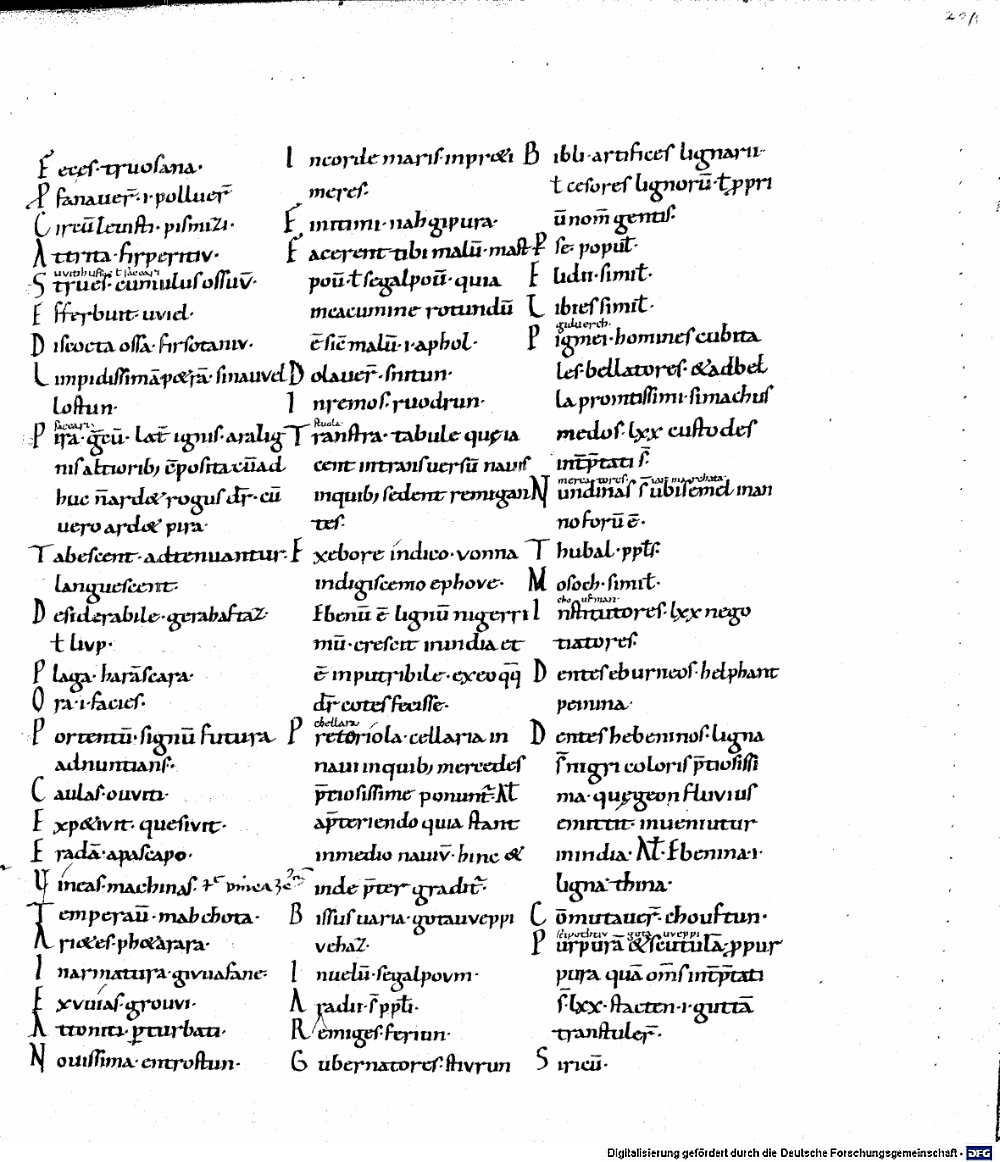 Feces· truosana·
Pfanauer̄· i· polluer̄
Circūleuisti· pismizi·
Attrita· firperitiv·
Strues· cumulus ossuv̄·
Efferbuit· uviel·
Discocta ossa· firsotaniv·
Limpidissimā p&rā· sinauvel
lostun·
saccari
Pira· gr̄cū· lat̄ ignis· aralig
nis altiorib; cp̄osita cū ad
huc n̄ ard& rogus dr̄· cū
uero ard& pira·
Tabescent· adtenuantur·
languescent·
Desiderabile· gerahaftaz·
ł liup·
Plaga· harāscara·
Ora· i· facies·
Portentū· signū futura
adnuntians·
Caulas· ouviti·
Exp&ivit· quesivit·
Eradā· apascapo·
Vineas· machinas·
Temperaū· mabchota·
Ari&es· ph&arara·
In armatura· givuafane·
Exvuias· grouvi·
Attoniti· p̄turbati·
Nouissima· entrostun·
In corde maris· inpr&i
meres·
Finitimi· nahgipura·
Facerent tibi malū· mast
poū· ł segalpoū· quia
incacumine rotundū
ē sic̄ malū· i· aphol·
Dolauer̄· snitun·
In remos· ruodrun·
stuola·
Transtra· tabule que ia
cent intransuersū nauis
inquib; sedent remigan
tes·
Ex ebore indico· vonna
indigiscemo ephove·
Ebenū ē lignū nigerri
mū· crescit inindia et
ē inputribile· exeo qq̄
dr̄ cotes fecisse·
chellara
Pretoriola· cellaria in
naui inquib; mercedes
p̄tiosissime ponunt̄· Al̄
ap̄teriendo quia stant
inmedio nauiv̄· hinc &
inde p̄ter gradit̄·
Bissus uaria· gotauveppi
vehaz·
In uelū· segalpovm·
Aradii· s̄ ppl̄i·
Remiges· feriun·
Gubernatores· stivrun
Bibli· artifices lignarii·
ł cesores lignorū· ł p̄pri
ū nom̄ gentis·
Pse· popul̄·
Lidii· simil̄·
Libies simil̄·
giduerch·
Pigmei· homines cubita
les· bellatores· & adbel̄
la promtissimi· simachus
medos· lxx custodes
int̄p̄tati s̄·
Nundinas s̄ ubi semel inan
no forū ē·
Thubal· ppl̄s·
Mosoch· simil̄·
Institutores· lxx nego
tiatores·
Dentes eburneos· helphant
peinina·
Dentes hebeninos· ligna
s̄ nigri coloris p̄tiosissi
ma· que geon fluvius
emittit· inueniutur
inindia· Al̄· Ebenina· i·
ligna· thina·
Cōmutauer̄· chouftun·
Purpurā & scutulā· p̄pur
pura quā om̄s int̄p̄tati
s̄· lxx· stacten· i· guttā
transtuler̄·
Siricū·
Digitalisierung gefördert durch die Deutsche Forschungsgemeinschaft - DFG